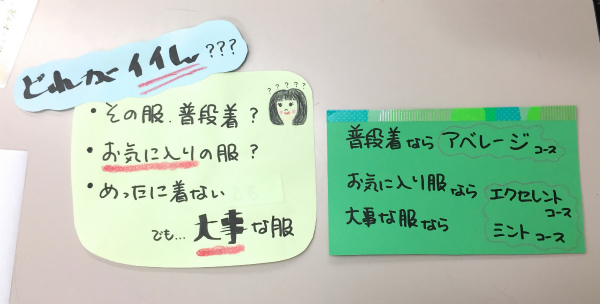 どれがイイん???
・その服、普段着?
?????
・お気に入りの服?
・めったに着ない
でも…大事な服
普段着なら アベレージコース
お気に入り服なら エクセレントコース
大事な服なら ミントコース